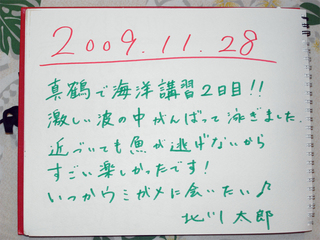 2009.11.28
真鶴で海洋講習2日目!!
激しい波の中がんばって泳ぎました
近づいても魚が逃げないから
すごい楽しかったです!
いつかウミガメに会いたい♪
北川太郎